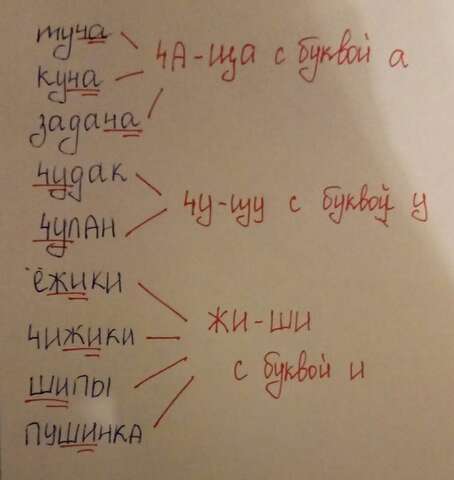 туча
ча-ща с буквой а
куча
задача
чудак
чу-щу с буквой у
чулан
ёжики
жи-ши
чижики
с буквой и
шипы
пушинка